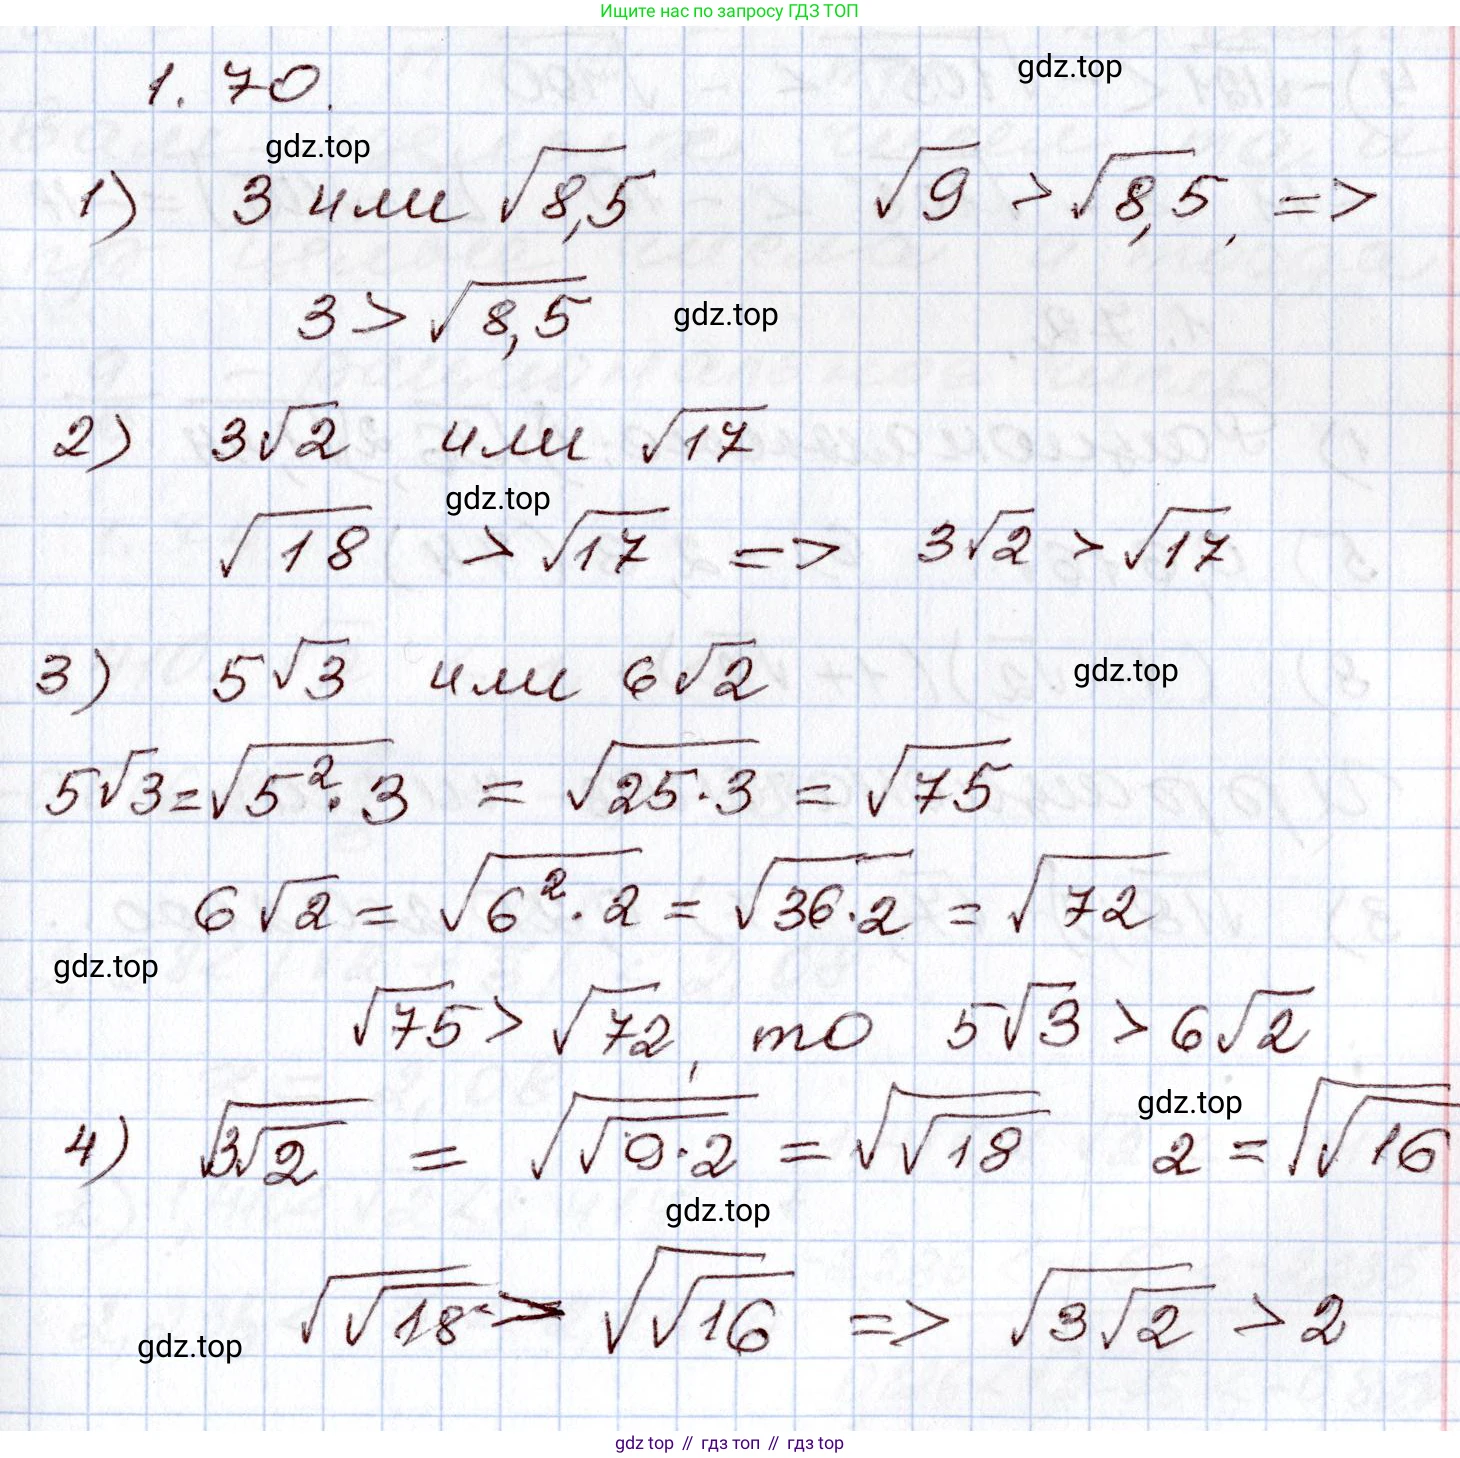 Ищите нас по запросу ГДЗ ТОП
1.70.
gdz.top
gdz.top
1) 3 или √8,5 √9 > √8,5, =>
3 > √8,5
gdz.top
2) 3√2 или √17
gdz.top
√18 > √17 => 3√2 > √17
3) 5√3 или 6√2
gdz.top
5√3 = √(5²·3) = √(25·3) = √75
6√2 = √(6²·2) = √(36·2) = √72
gdz.top
√75 > √72, то 5√3 > 6√2
gdz.top
4) √(3√2) = √(√(9·2)) = √(√18) 2 = √(√16)
gdz.top
√(√18) > √(√16) => √(3√2) > 2
gdz.top
gdz top // гдз топ // гдз top